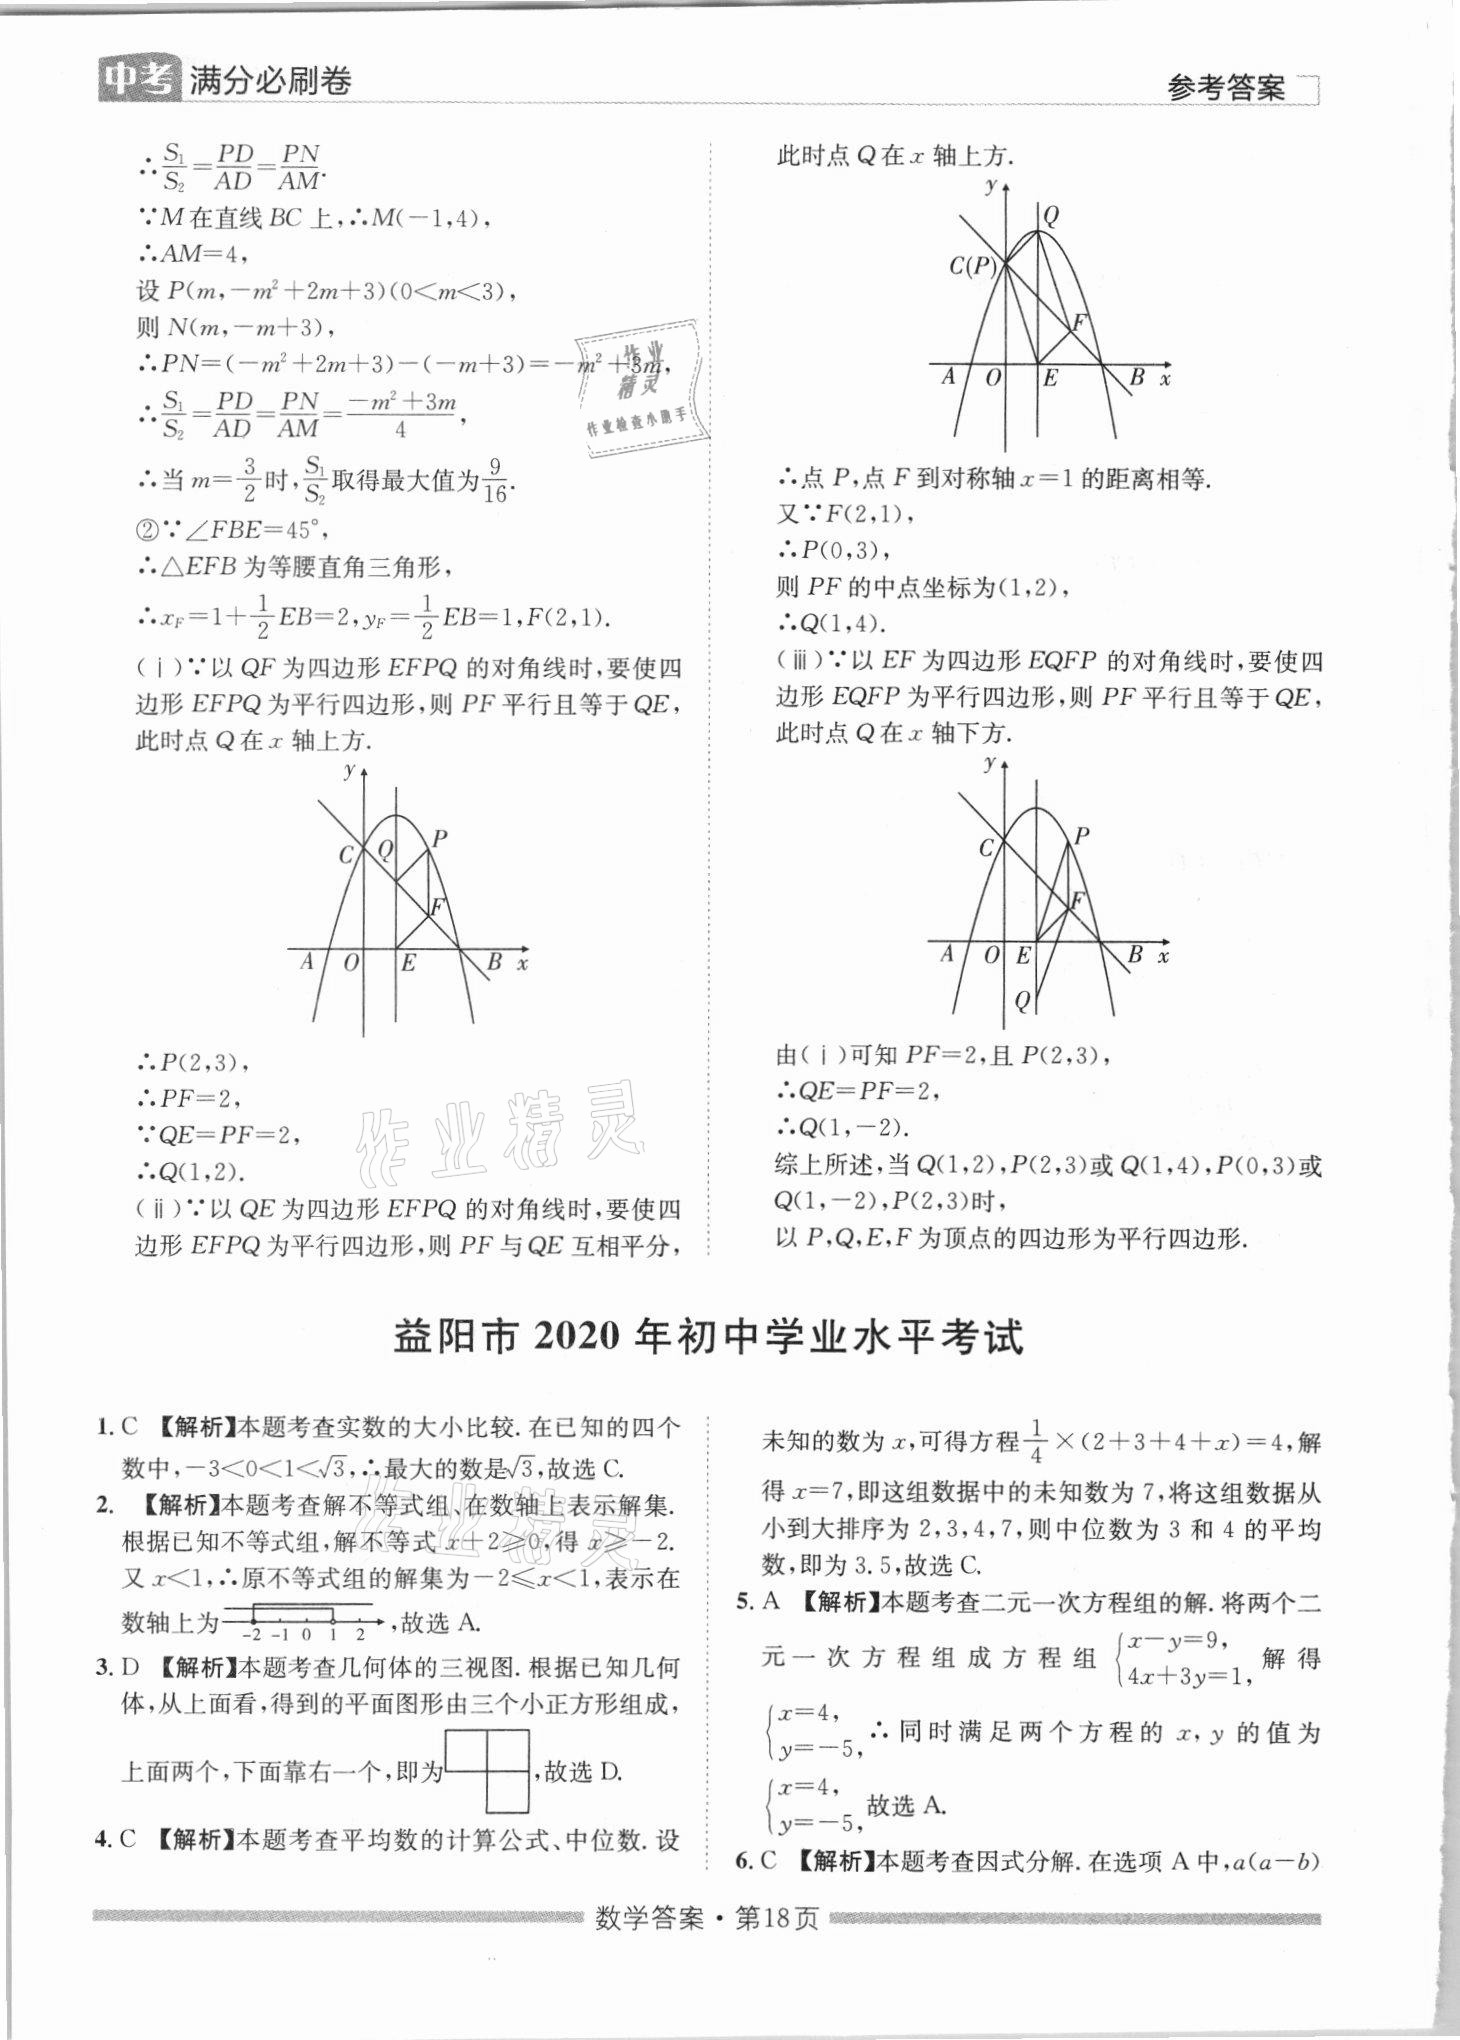 中考 满分必刷卷
参考答案
∴S₁/S₂=PD/AD=PN/AM.
∵M在直线BC上,∴M(-1,4),
∴AM=4,
设P(m,-m²+2m+3)(0<m<3),
则N(m,-m+3),
∴PN=(-m²+2m+3)-(-m+3)=-m²+3m,
∴S₁/S₂=PD/AD=PN/AM=(-m²+3m)/4,
∴当m=3/2时,S₁/S₂取得最大值为9/16.
②∵∠FBE=45°,
∴△EFB为等腰直角三角形,
∴x_F=1+1/2EB=2,y_F=1/2EB=1,F(2,1).
(ⅰ)∵以QF为四边形EFPQ的对角线时,要使四
边形EFPQ为平行四边形,则PF平行且等于QE,
此时点Q在x轴上方.
y
C Q P
F
A O E B x
∴P(2,3),
∴PF=2,
∵QE=PF=2,
∴Q(1,2).
(ⅱ)∵以QE为四边形EFPQ的对角线时,要使四
边形EFPQ为平行四边形,则PF与QE互相平分,
此时点Q在x轴上方.
y
Q
C(P)
F
A O E B x
∴点P,点F到对称轴x=1的距离相等.
又∵F(2,1),
∴P(0,3),
则PF的中点坐标为(1,2),
∴Q(1,4).
(ⅲ)∵以EF为四边形EQFP的对角线时,要使四
边形EQFP为平行四边形,则PF平行且等于QE,
此时点Q在x轴下方.
y
C P
F
A O E B x
Q
由(ⅰ)可知PF=2,且P(2,3),
∴QE=PF=2,
∴Q(1,-2).
综上所述,当Q(1,2),P(2,3)或Q(1,4),P(0,3)或
Q(1,-2),P(2,3)时,
以P,Q,E,F为顶点的四边形为平行四边形.
作业
精灵
作业检查小助手
作业精灵
益阳市2020年初中学业水平考试
1. C 【解析】本题考查实数的大小比较.在已知的四个
数中,-3<0<1<√3,∴最大的数是√3,故选C.
2. 【解析】本题考查解不等式组、在数轴上表示解集.
根据已知不等式组,解不等式x+2≥0,得x≥-2.
又x<1,∴原不等式组的解集为-2≤x<1,表示在
数轴上为 -2 -1 0 1 2 ,故选A.
3. D 【解析】本题考查几何体的三视图.根据已知几何
体,从上面看,得到的平面图形由三个小正方形组成,
上面两个,下面靠右一个,即为 ,故选D.
4. C 【解析】本题考查平均数的计算公式、中位数.设
未知的数为x,可得方程1/4×(2+3+4+x)=4,解
得x=7,即这组数据中的未知数为7,将这组数据从
小到大排序为2,3,4,7,则中位数为3和4的平均
数,即为3.5,故选C.
5. A 【解析】本题考查二元一次方程组的解.将两个二
元一次方程组成方程组{x-y=9, 4x+3y=1, 解得
{x=4, y=-5, ∴同时满足两个方程的x,y的值为
{x=4, y=-5, 故选A.
6. C 【解析】本题考查因式分解.在选项A中,a(a-b)
作业精灵
数学答案·第18页